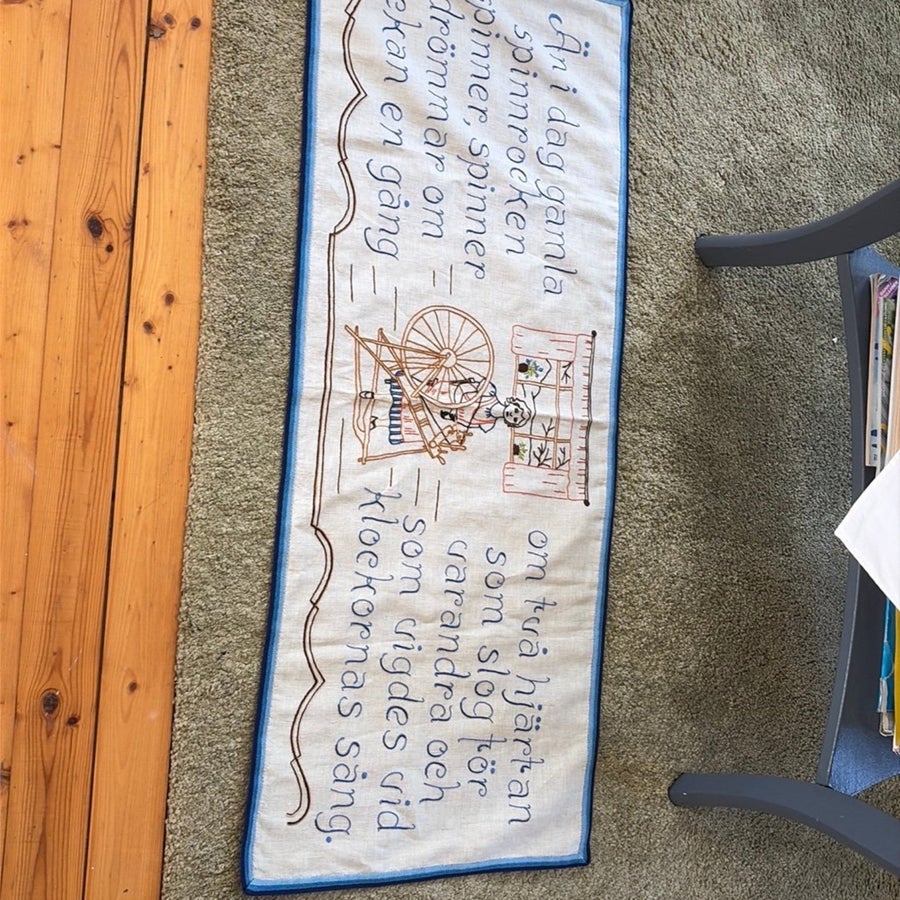 Än i dag gamla
spinnrocken
spinner, spinner
drömmar om
ckan en gång
om två hjärtan
som slog för
varandra och
som vigdes vid
klockornas sång.